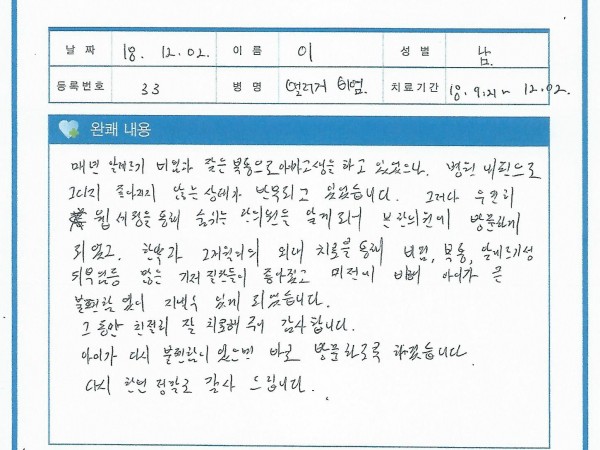 날 짜 18. 12.02. 이 름 이 성 별 남.
등록번호 33 병 명 알러지 비염. 치료기간 18. 9.21~ 12.02.
완쾌 내용
매년 알레르기 비염과 잦은 복통으로 아파 고생을 하고 있었으나. 병원 처방으로
그다지 좋아지지 않는 상태가 반복되고 있었습니다. 그러다 우연히
웹 서핑을 통해 숨쉬는 한의원을 알게되어 본 한의원에 방문하게
되었고. 한약과 그거외의 외래 치료를 통해 비염, 복통, 알레르기성
피부염등 많은 기저 질환들이 좋아졌고 이전에 비해 아이가 큰
불편함 없이 지낼수 있게 되었습니다.
그 동안 친절히 잘 치료해 주셔 감사합니다.
아이가 다시 불편함이 있으면 바로 방문하도록 하겠습니다
다시 한번 정말로 감사 드립니다.